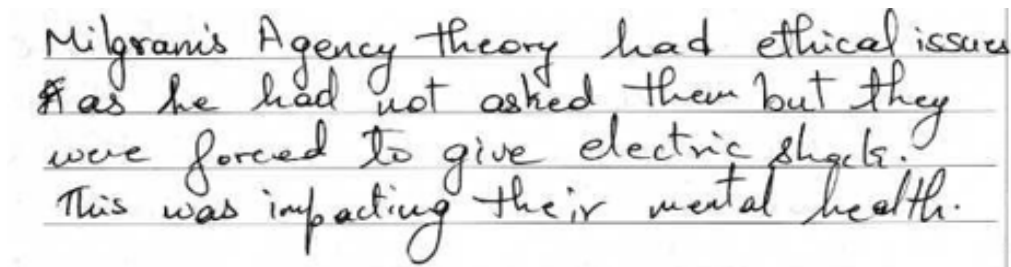 Milgram's Agency theory had ethical issues
as he had not asked them but they
were forced to give electric shock.
This was impacting their mental health.